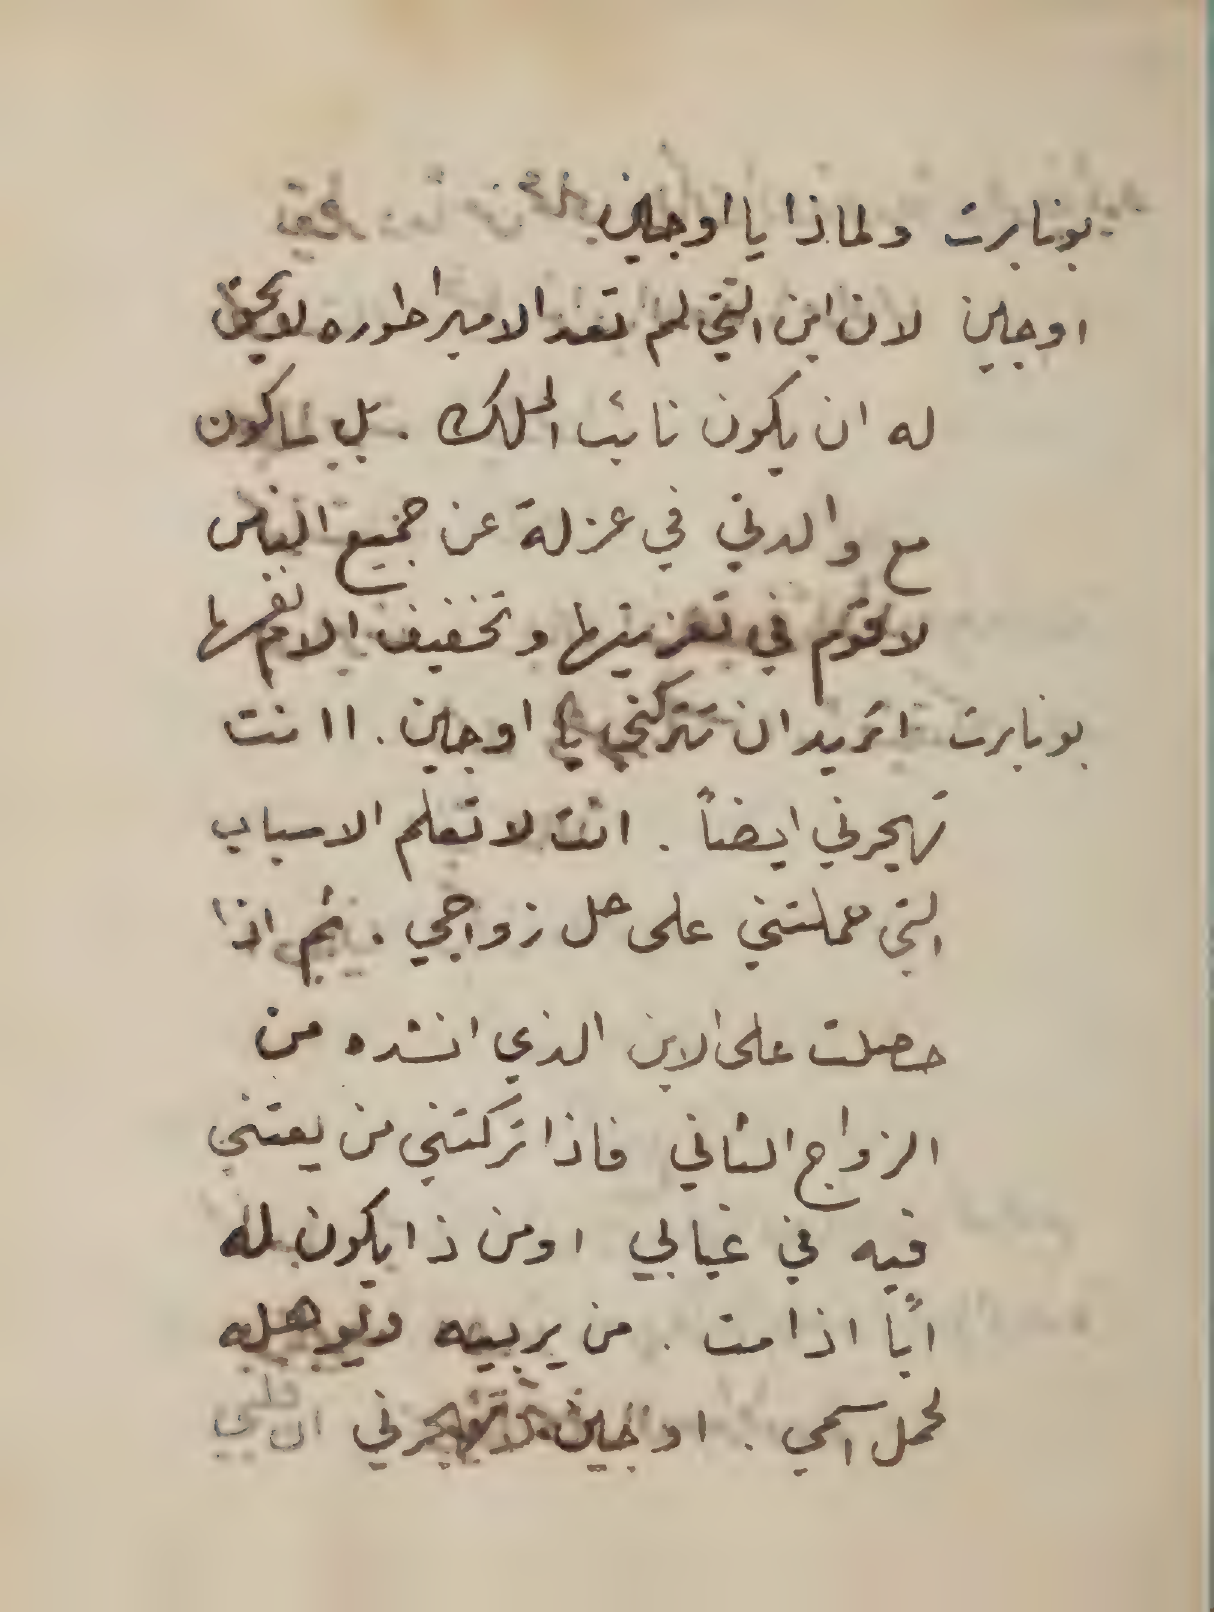 بونابرت ولماذا يا اوجاين
اوجاين لان ابن التي لم تعد الامبراطوره لا يحق
له ان يكون نائب الملك . بل لاكون
مع والدتي في عزلة عن جميع الناس
لاقوم في تعزيتها وتخفيف الام نفسها
بونابرت اتريد ان تتركني يا اوجاين . اانت
تهجرني ايضاً . انت لا تعلم الاسباب
التي حملتني على حل زواجي . ثم اذا
حصلت على الابن الذي انشده من
الزواج الثاني فاذا تركتني من يعتني
فيه في غيابي اومن ذا يكون له
اباً اذا مت . من يربيه ويوهله
لحمل اسمي . اوجاين لا تهجرني ان قلبي